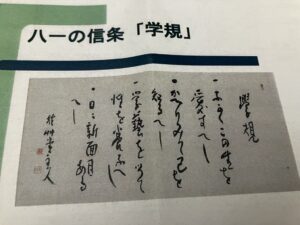 八一の信条「学規」
學規
一ふかくこの生を
愛すへし
一かへりみて己を
知るへし
一学藝を以て
性を養ふへし
一日々新面目ある
へし
秋艸堂主人